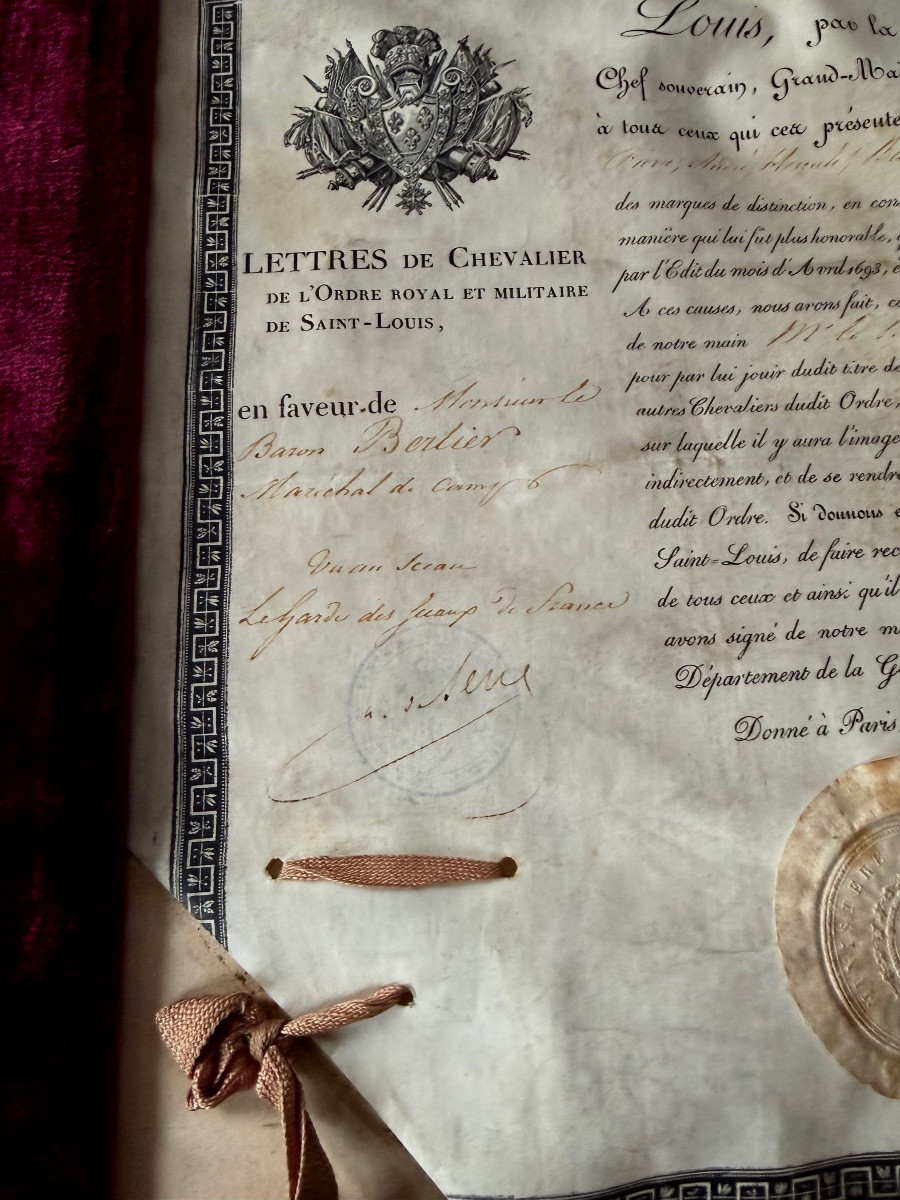 LETTRES DE CHEVALIER
DE L'ORDRE ROYAL ET MILITAIRE
DE SAINT-LOUIS,
en faveur de Monsieur le
Baron Berlier
Maréchal de Camp
Vu au Sceau
Le Garde des Sceaux de France
Louis, par la
Chef souverain, Grand-Ma
à tous ceux qui ces présente
des marques de distinction, en con
manière qui lui fût plus honorable,
par l'Edit du mois d'Avril 1693,
A ces causes, nous avons fait, c
de notre main Mr le
pour par lui jouir dudit titre de
autres Chevaliers dudit Ordre,
sur laquelle il y aura l'image
indirectement, et de se rendre
dudit Ordre. Si donnons e
Saint-Louis, de faire rec
de tous ceux et ainsi qu'il
avons signé de notre m
Département de la G
Donné à Paris
MINISTERE